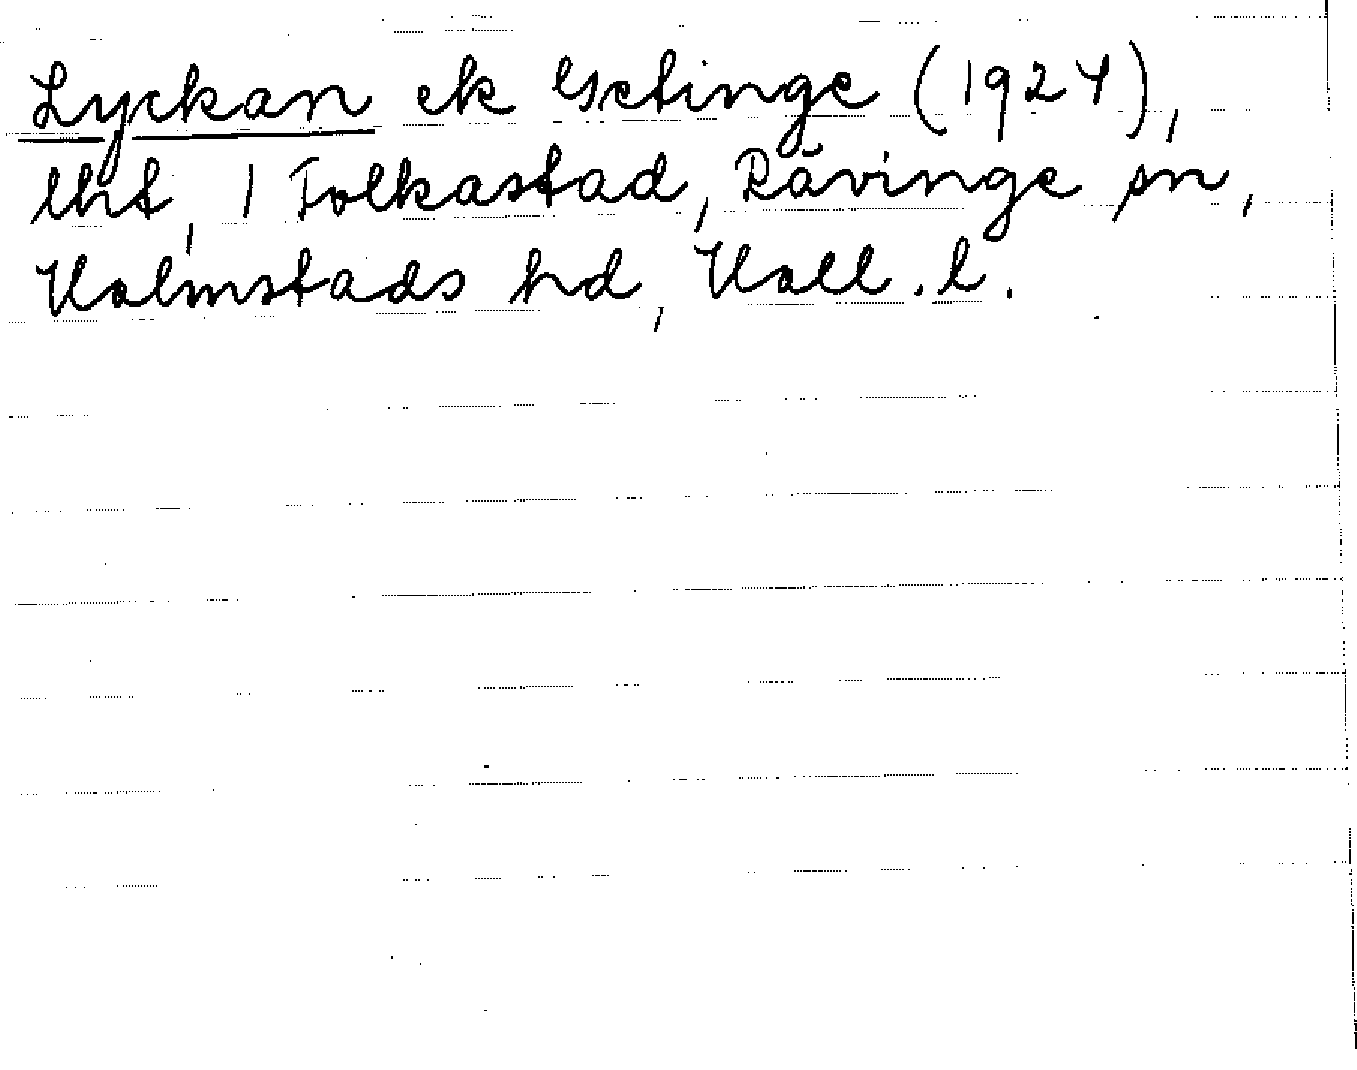 Lyckan ek Getinge (1924),
lht, 1 Folkastad, Rävinge sn,
Halmstads hd, Hall. l.